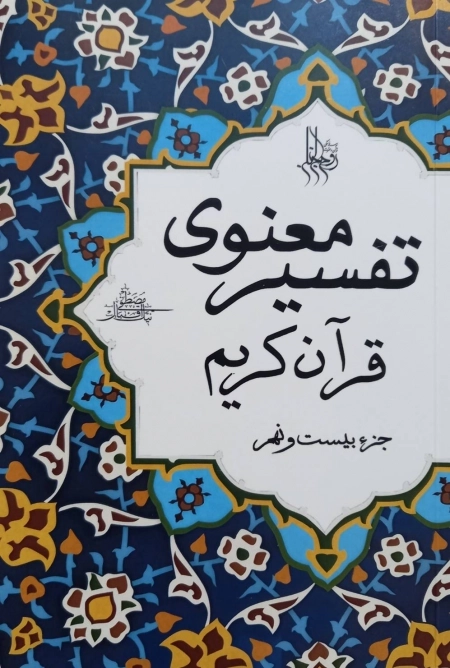 تفسیر معنوی
قرآن کریم
جزء بیست و نهم